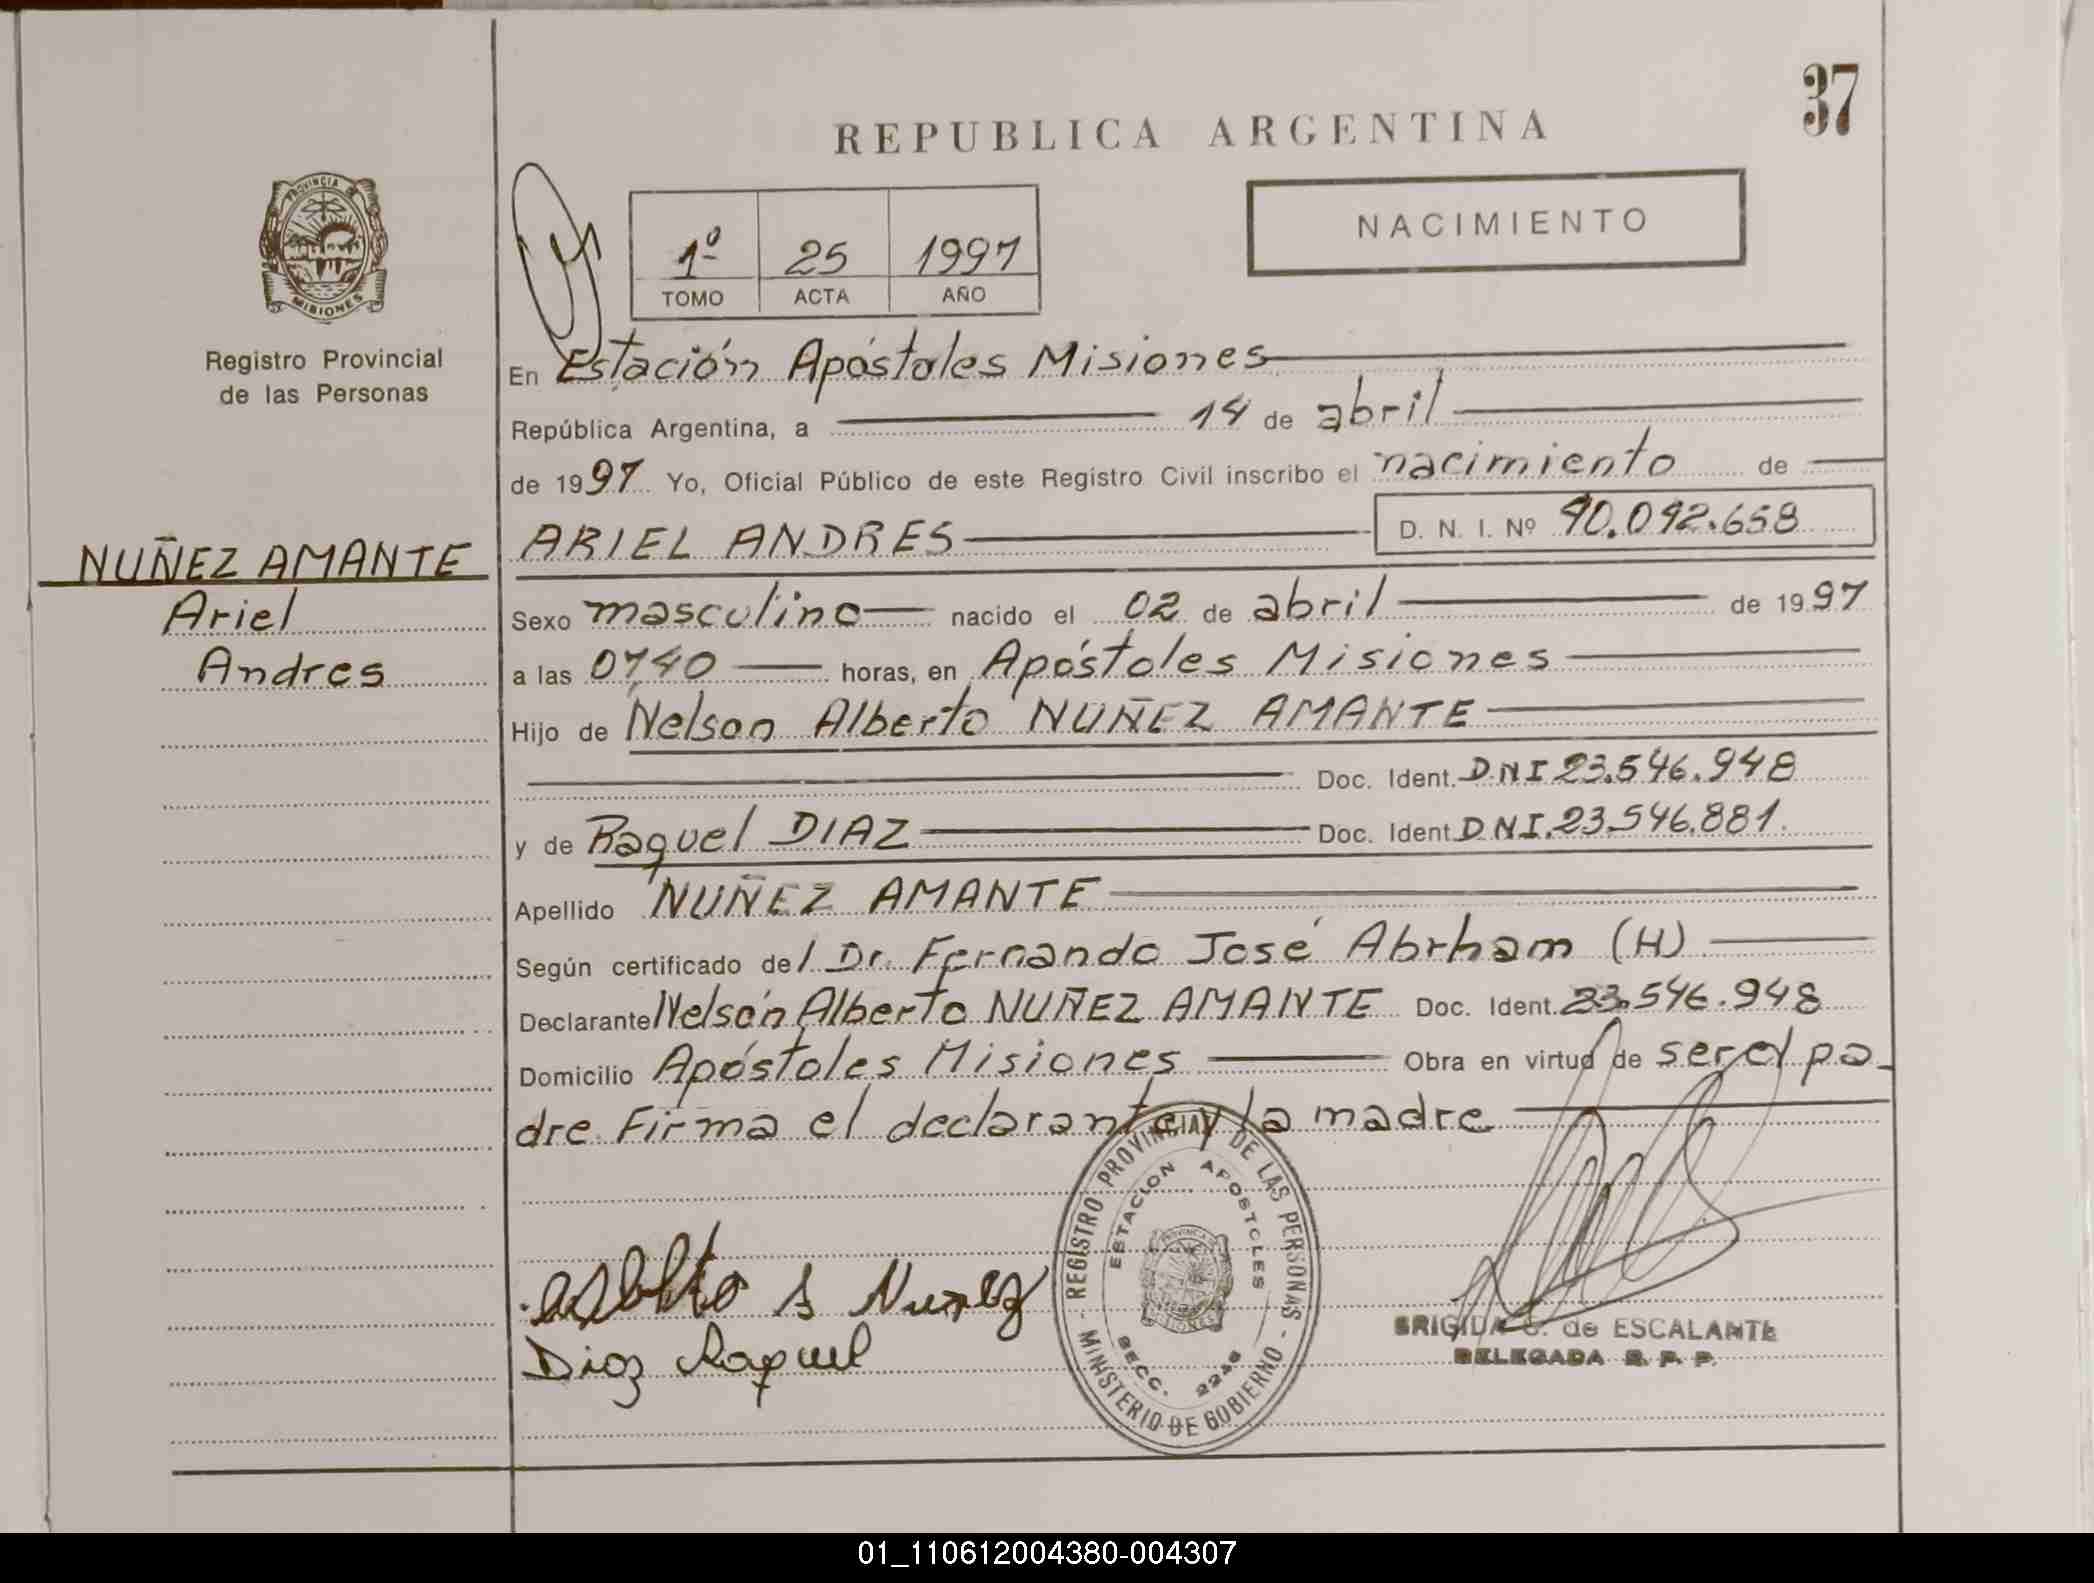 37
REPUBLICA ARGENTINA
NACIMIENTO
1º 25 1997
TOMO ACTA AÑO
PROVINCIA DE
MISIONES
Registro Provincial
de las Personas
NUÑEZ AMANTE
Ariel
Andres
En Estación Apóstoles Misiones
República Argentina, a 14 de abril
de 1997 Yo, Oficial Público de este Registro Civil inscribo el nacimiento de
ARIEL ANDRES D. N. I. Nº 40.042.658
Sexo masculino nacido el 02 de abril de 1997
a las 07,40 horas, en Apóstoles Misiones
Hijo de Nelson Alberto NUÑEZ AMANTE
Doc. Ident. DNI 23.546.948
y de Raquel DIAZ Doc. Ident DNI.23.546.881.
Apellido NUÑEZ AMANTE
Según certificado del Dr. Fernando José Abrham (H)
Declarante Nelsón Alberto NUÑEZ AMANTE Doc. Ident. 23.546.948
Domicilio Apóstoles Misiones Obra en virtud de ser el pa_
dre. Firma el declarante y la madre
REGISTRO PROVINCIAL DE LAS PERSONAS - MINISTERIO DE GOBIERNO -
ESTACION APOSTOLES
SECC. 2246
Nuñez
Diaz Raquel
BRIGIDA G. de ESCALANTE
DELEGADA R. P. P.
01_110612004380-004307